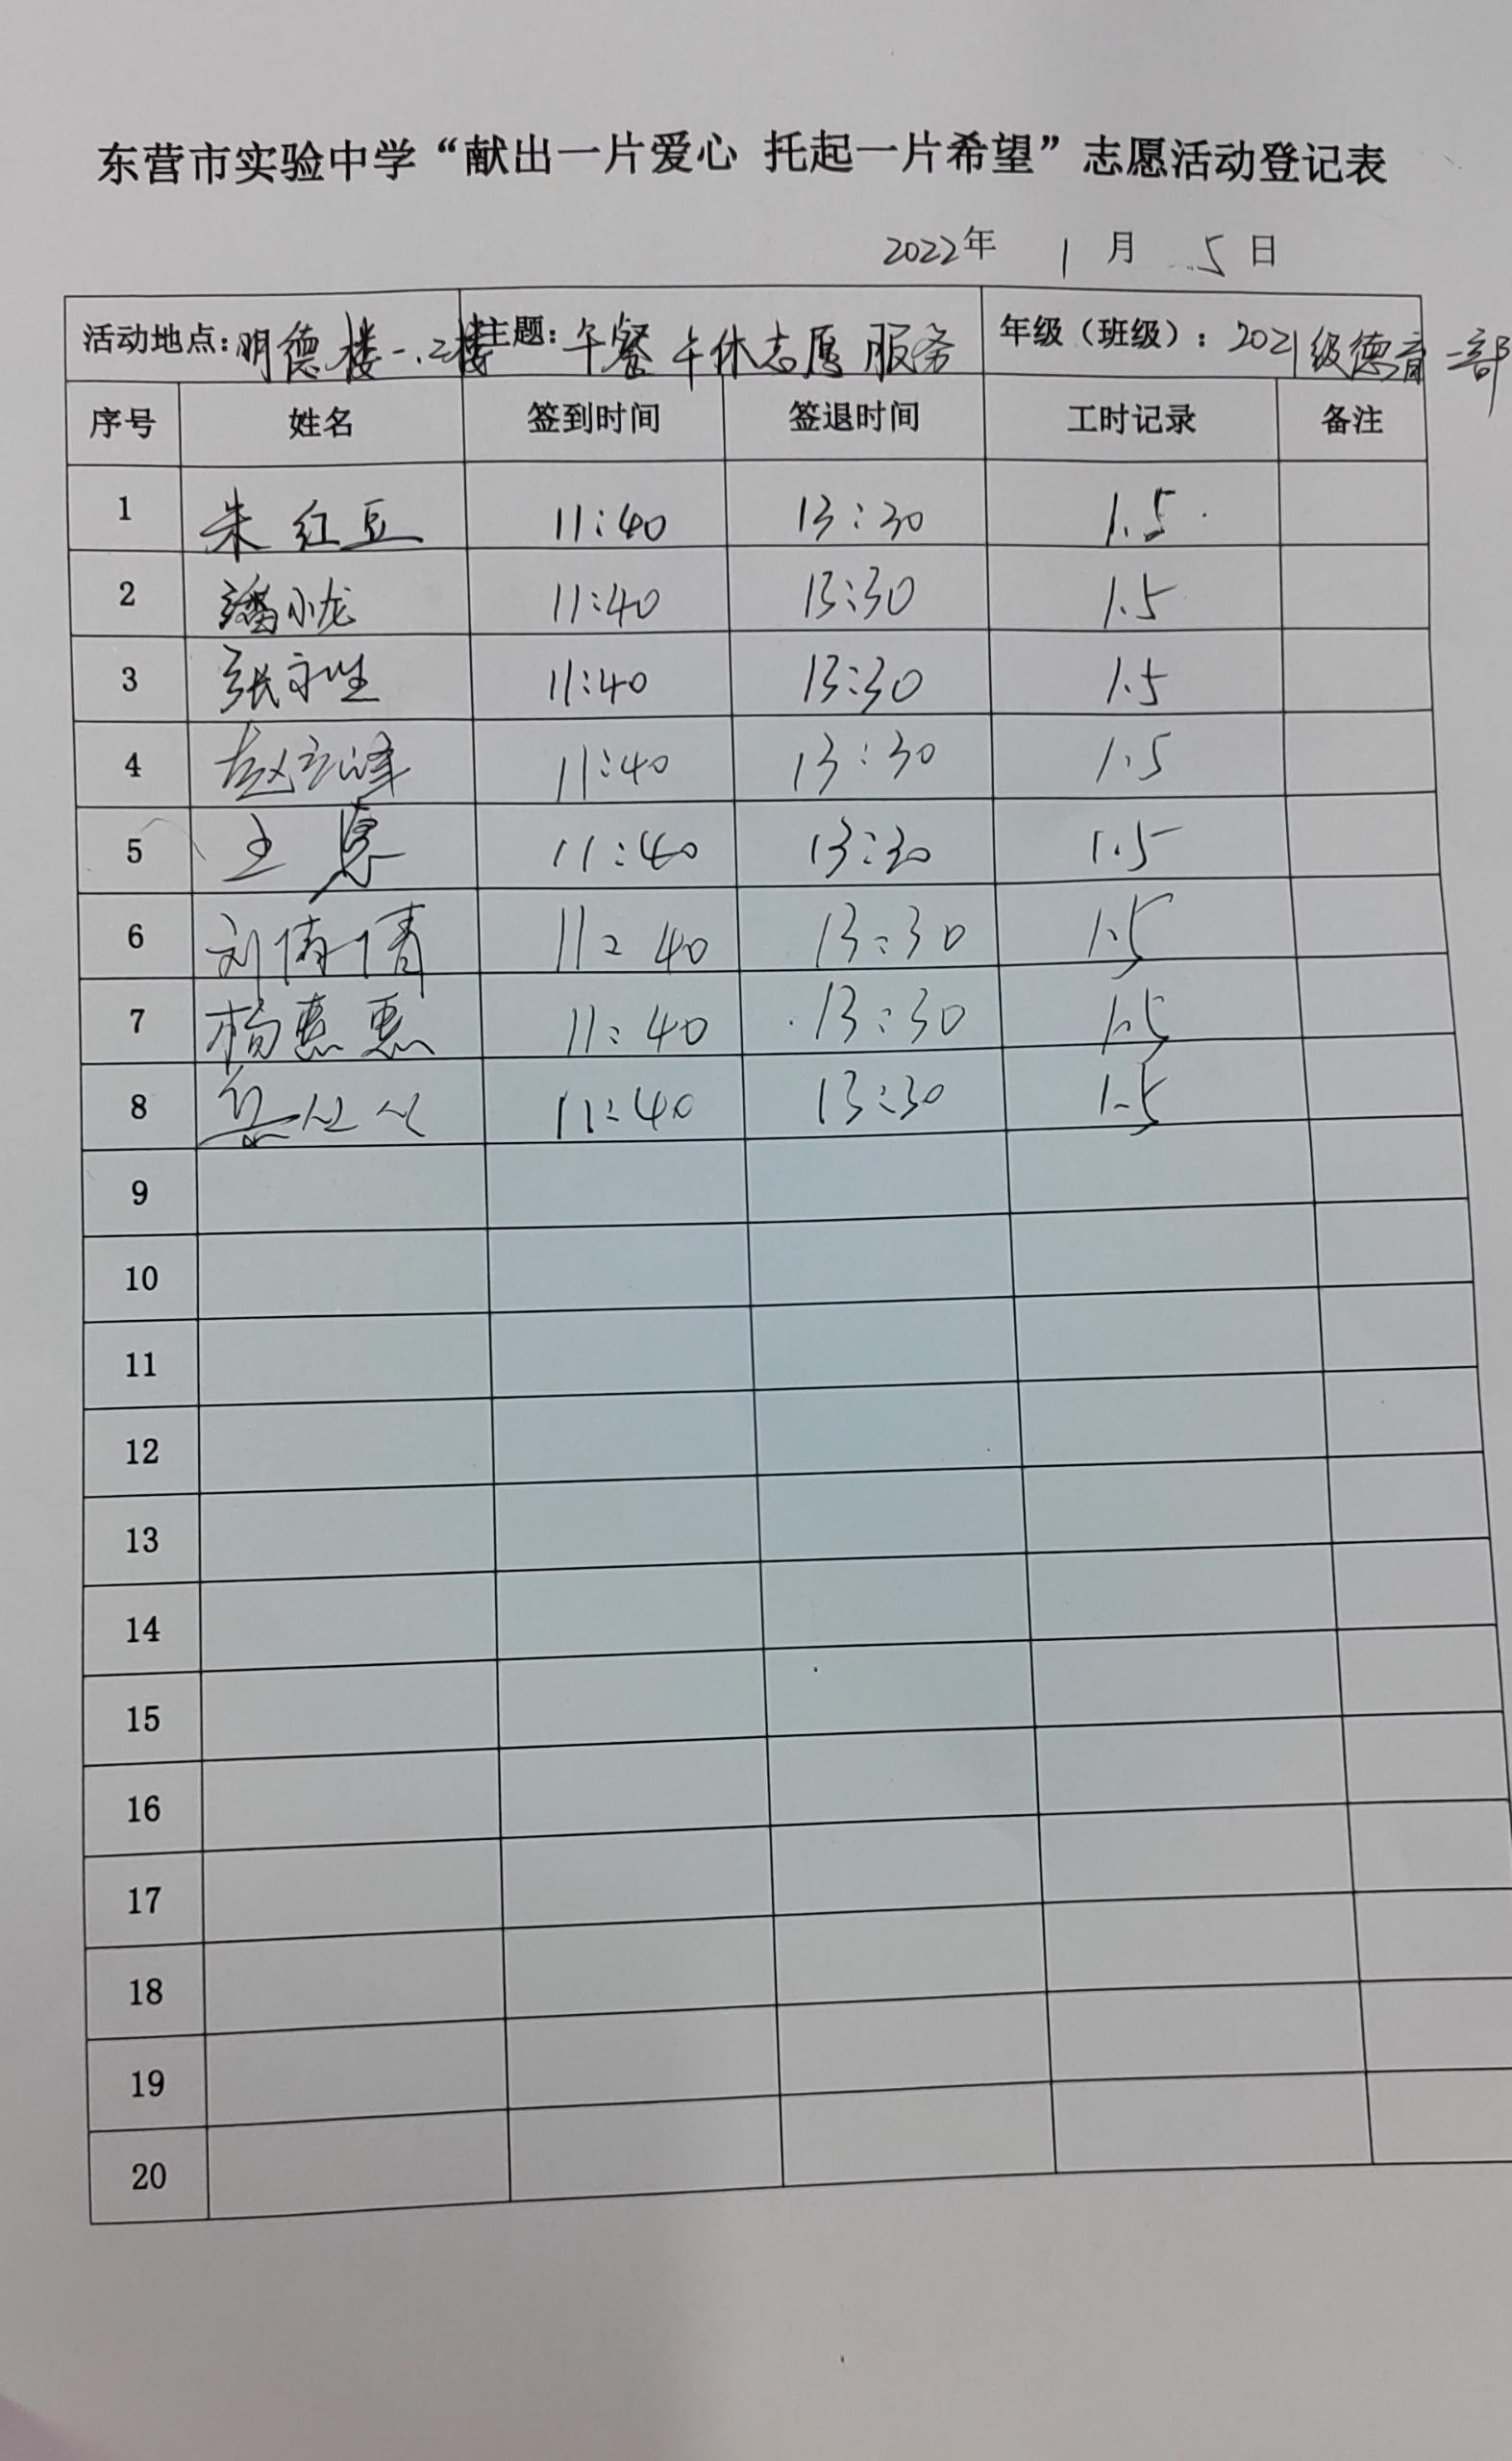 东营市实验中学“献出一片爱心 托起一片希望”志愿活动登记表
2022年 1 月 5 日
活动地点：明德楼一.二楼 主题：午餐午休志愿服务 年级（班级）：2021级德育二部
序号 姓名 签到时间 签退时间 工时记录 备注
1 朱红豆 11:40 13:30 1.5
2 潘小龙 11:40 13:30 1.5
3 张永生 11:40 13:30 1.5
4 赵立峰 11:40 13:30 1.5
5 王 11:40 13:30 1.5
6 刘倩倩 11:40 13:30 1.5
7 杨惠惠 11:40 13:30 1.5
8 11:40 13:30 1.5
9
10
11
12
13
14
15
16
17
18
19
20